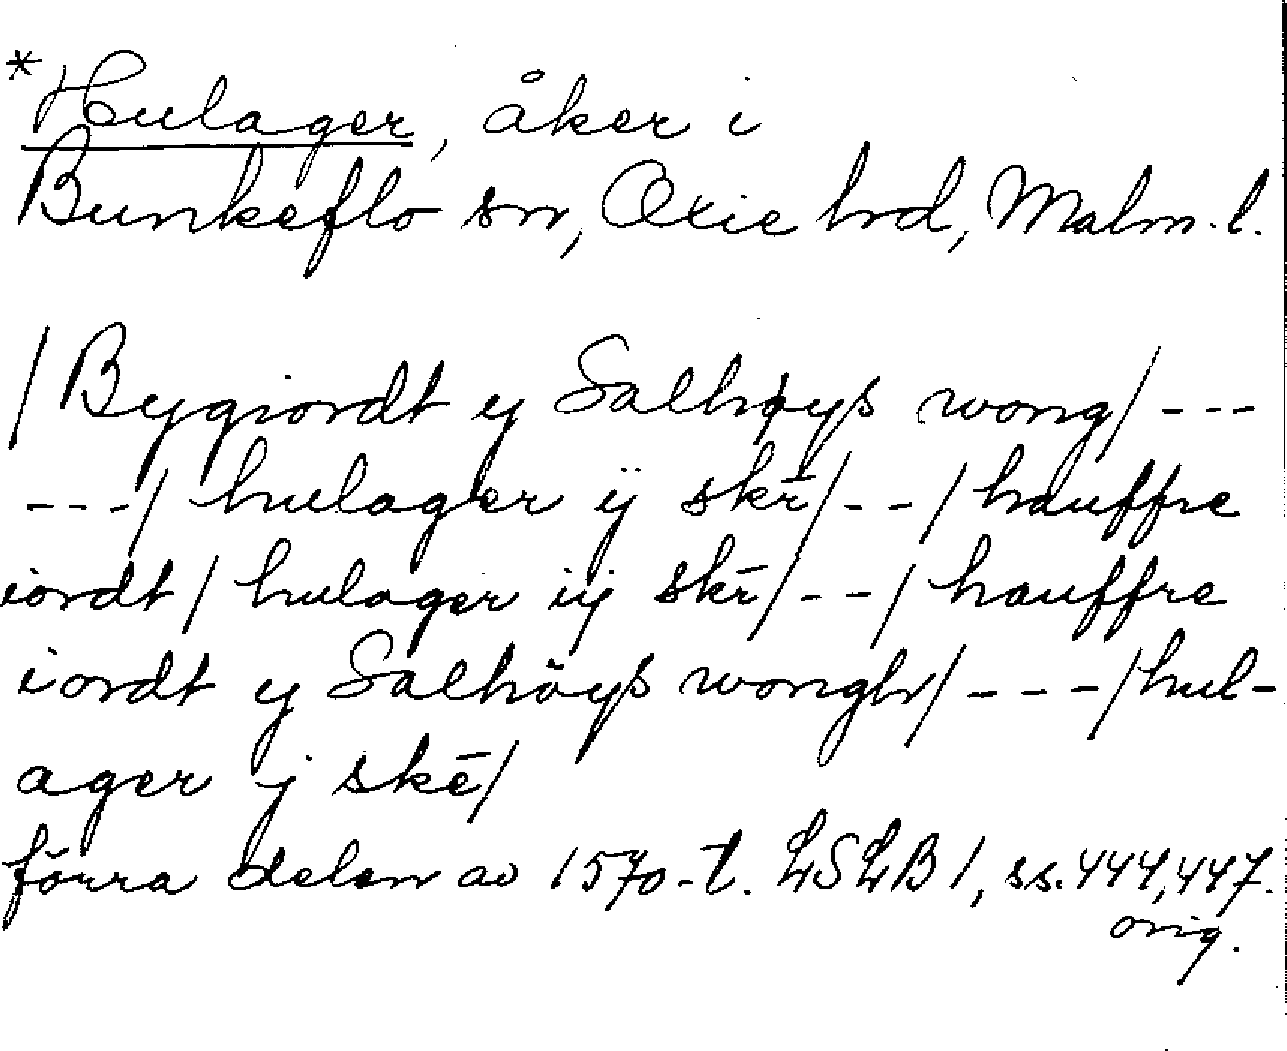 *Hulager, åker i
Bunkeflo sn, Oxie hd, Malm. l.
/Bygiordt y Salhøys wong/ ---
---/ hulager ij skr̄/ -- / hauffre
iordt / hulager iij skr̄/ -- / hauffre
iordt y Salhöys wongh/ --- /hul-
ager j skē/
förra delen av 1570-t. LSLB 1, ss. 444, 447.
orig.